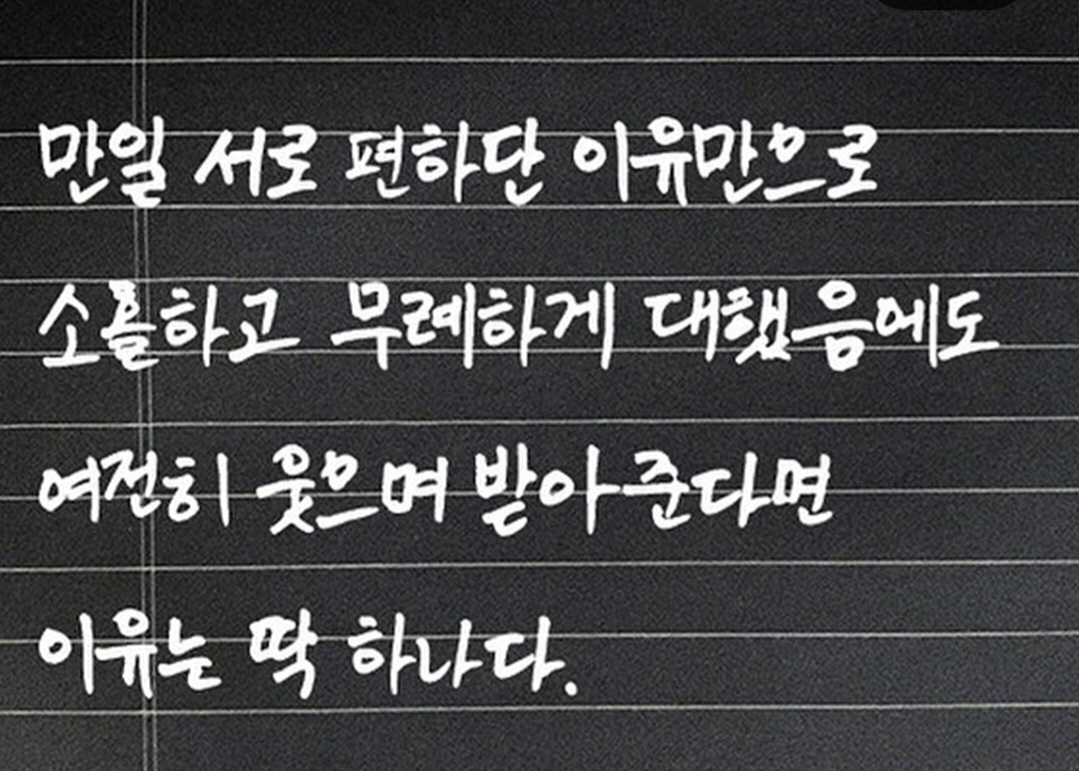 만일 서로 편하단 이유만으로
소홀하고 무례하게 대했음에도
여전히 웃으며 받아준다면
이유는 딱 하나다.